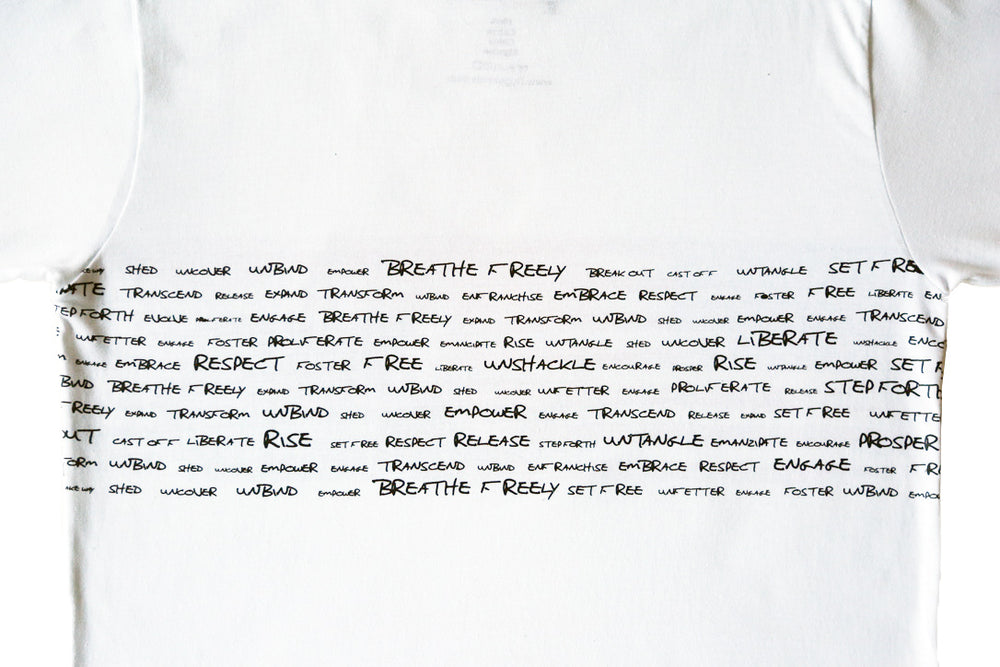 SHED UNCOVER UNBIND EMPOWER BREATHE FREELY BREAK OUT CAST OFF UNTANGLE SET FREE
TRANSCEND RELEASE EXPAND TRANSFORM UNBIND ENFRANCHISE EMBRACE RESPECT ENGAGE FOSTER FREE LIBERATE EN
TEP FORTH EVOLVE PROLIFERATE ENGAGE BREATHE FREELY EXPAND TRANSFORM UNBIND SHED UNCOVER EMPOWER ENGAGE TRANSCEND
UNFETTER ENGAGE FOSTER PROLIFERATE EMPOWER EMANCIPATE RISE UNTANGLE SHED UNCOVER LIBERATE UNSHACKLE ENCO
ENGAGE EMBRACE RESPECT FOSTER FREE LIBERATE UNSHACKLE ENCOURAGE PROSPER RISE UNTANGLE EMPOWER SET F
BIND BREATHE FREELY EXPAND TRANSFORM UNBIND SHED UNCOVER UNFETTER ENGAGE PROLIFERATE RELEASE STEP FORT
REELY EXPAND TRANSFORM UNBIND SHED UNCOVER EMPOWER ENGAGE TRANSCEND RELEASE EXPAND SET FREE UNFETTE
OUT CAST OFF LIBERATE RISE SET FREE RESPECT RELEASE STEP FORTH UNTANGLE EMANZIPATE ENCOURAGE PROSPER
ORM UNBIND SHED UNCOVER EMPOWER ENGAGE TRANSCEND UNBIND ENFRANCHISE EMBRACE RESPECT ENGAGE FOSTER FR
SHED UNCOVER UNBIND EMPOWER BREATHE FREELY SET FREE UNFETTER ENGAGE FOSTER UNBIND EMPO